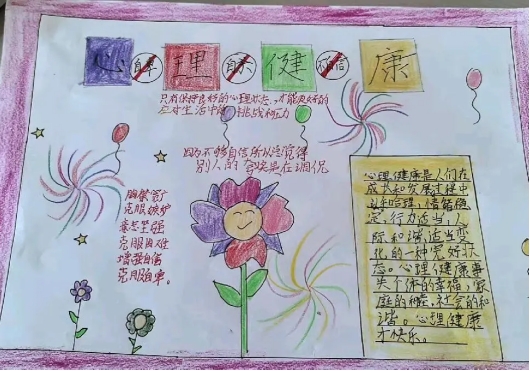 心 自卑 理 自大 健 康
只有保持良好的心理状态,才能更好的
应对生活中的挑战和压力
因为不够自信所以总觉得
别人的夸奖是在调侃
胸襟宽广
克服嫉妒
意志坚强
克服困难
增强自信
克服自卑。
心理健康是人们在
成长和发展过程中
认知合理、情绪稳
定、行为适当、人
际和谐、适当变
化的一种完好状
态。心理健康事
关个体的幸福,家
庭的和睦,社会的和
谐。心理健康
才快乐。